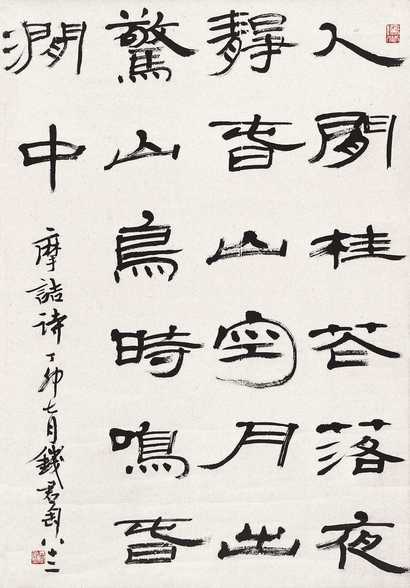 人閒桂花落夜
靜春山空月出
驚山鳥時鳴春
澗中
摩詰詩丁卯七月錢君匋八十二